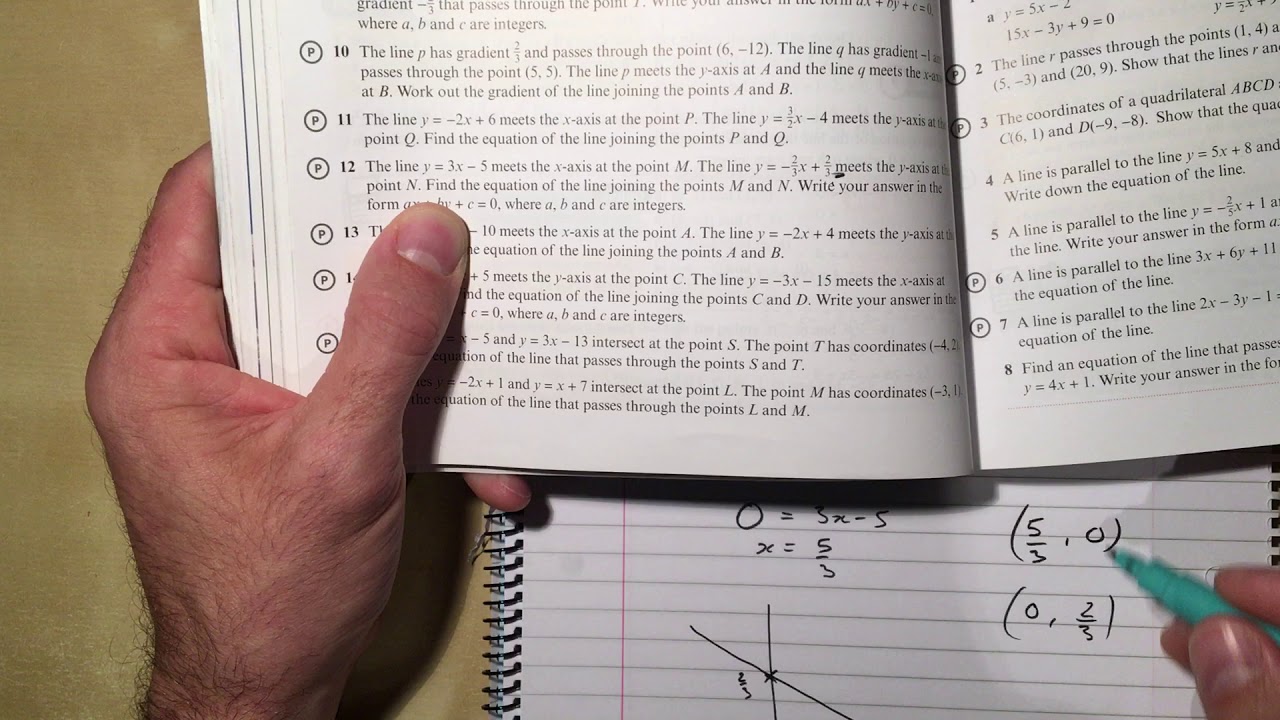 gradient −2/3 that passes through the point T. Write your answer in the form ax + by + c = 0,
where a, b and c are integers.
P 10 The line p has gradient 2/3 and passes through the point (6, −12). The line q has gradient −1
passes through the point (5, 5). The line p meets the y-axis at A and the line q meets the x-
at B. Work out the gradient of the line joining the points A and B.
P 11 The line y = −2x + 6 meets the x-axis at the point P. The line y = 3/2x − 4 meets the y-axis at
point Q. Find the equation of the line joining the points P and Q.
P 12 The line y = 3x − 5 meets the x-axis at the point M. The line y = −2/3x + 2/3 meets the y-axis at
point N. Find the equation of the line joining the points M and N. Write your answer in the
form by + c = 0, where a, b and c are integers.
P 13 − 10 meets the x-axis at the point A. The line y = −2x + 4 meets the y-axis at
the equation of the line joining the points A and B.
P + 5 meets the y-axis at the point C. The line y = −3x − 15 meets the x-axis at
the equation of the line joining the points C and D. Write your answer in the
c = 0, where a, b and c are integers.
P x − 5 and y = 3x − 13 intersect at the point S. The point T has coordinates (−4, 2)
equation of the line that passes through the points S and T.
y = −2x + 1 and y = x + 7 intersect at the point L. The point M has coordinates (−3, 1)
the equation of the line that passes through the points L and M.
a y = 5x − 2
15x − 3y + 9 = 0
P 2 The line r passes through the points (1, 4) a
(5, −3) and (20, 9). Show that the lines r an
P 3 The coordinates of a quadrilateral ABCD
C(6, 1) and D(−9, −8). Show that the qua
4 A line is parallel to the line y = 5x + 8 and
Write down the equation of the line.
5 A line is parallel to the line y = −2/5x + 1 a
the line. Write your answer in the form a
P 6 A line is parallel to the line 3x + 6y + 11
the equation of the line.
P 7 A line is parallel to the line 2x − 3y − 1
equation of the line.
8 Find an equation of the line that passe
y = 4x + 1. Write your answer in the fo
0 = 3x − 5
x = 5/3
(5/3, 0)
(0, 2/3)
2/3